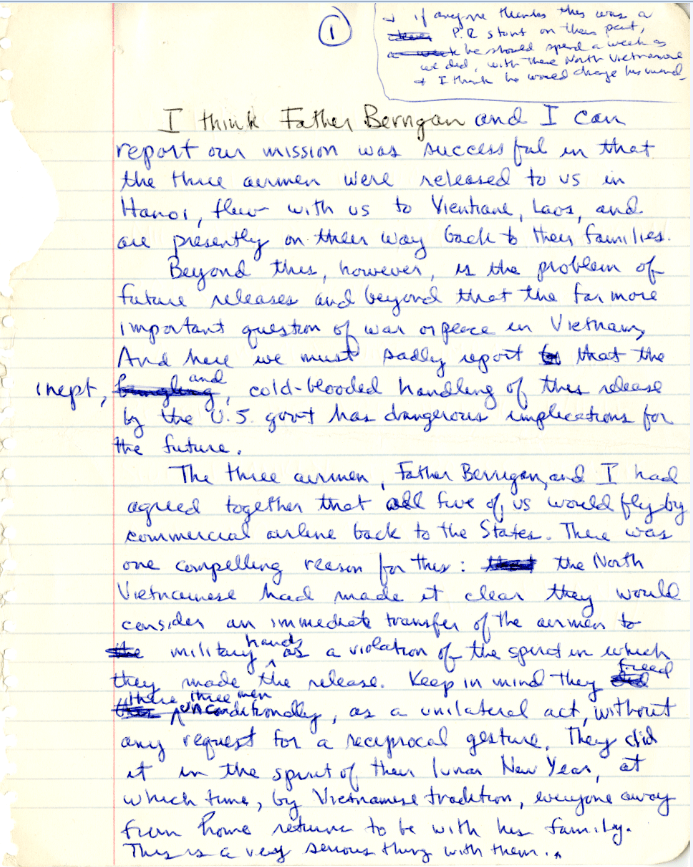 ①
→ if anyone thinks this was a
P.R stunt on their part,
he should spend a week as
we did, with these North Vietnamese
+ I think he would change his mind.
I think Father Berrigan and I can
report our mission was successful in that
the three airmen were released to us in
Hanoi, flew with us to Vientiane, Laos, and
are presently on their way back to their families.
Beyond this, however, is the problem of
future releases and beyond that the far more
important question of war or peace in Vietnam.
And here we must sadly report that the
inept, and cold-blooded handling of this release
by the U.S. gov't has dangerous implications for
the future.
The three airmen, Father Berrigan, and I had
agreed together that all five of us would fly by
commercial airline back to the States. There was
one compelling reason for this: the North
Vietnamese had made it clear they would
consider an immediate transfer of the airmen to
military hands as a violation of the spirit in which
they made the release. Keep in mind they freed
these three men unconditionally, as a unilateral act, without
any request for a reciprocal gesture. They did
it in the spirit of their lunar New Year, at
which time, by Vietnamese tradition, everyone away
from home returns to be with his family.
This is a very serious thing with them.